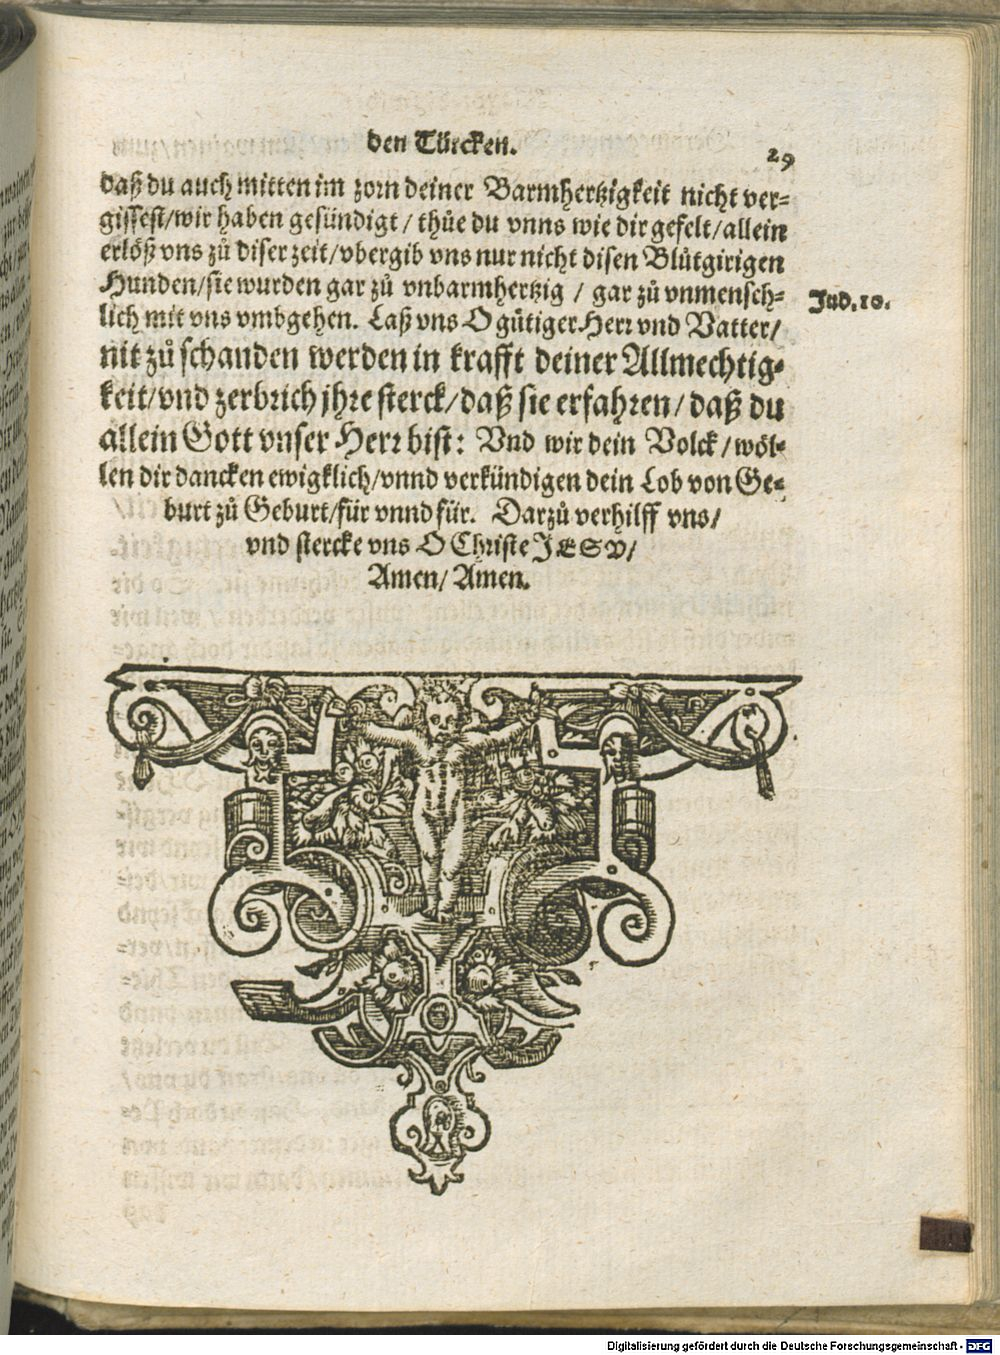 den Türcken.
29
daß du auch mitten im zorn deiner Barmhertzigkeit nicht ver=
gissest/wir haben gesündigt / thüe du vnns wie dir gefelt/allein
erlöß vns zů diser zeit/vbergib vns nur nicht disen Blůtgirigen
Hunden/sie wurden gar zů vnbarmhertzig / gar zů vnmensch=
Jud. 10.
lich mit vns vmbgehen. Laß vns O gůtiger Herr vnd Vatter/
nit zů schanden werden in krafft deiner Allmechtig=
keit/vnd zerbrich jhre sterck/daß sie erfahren/daß du
allein Gott vnser Herr bist: Vnd wir dein Volck/wöl=
len dir dancken ewigklich/vnnd verkündigen dein Lob von Ge=
burt zů Geburt/für vnnd für. Darzů verhilff vns/
vnd stercke vns O Christe JESV/
Amen/ Amen.
Digitalisierung gefördert durch die Deutsche Forschungsgemeinschaft - DFG